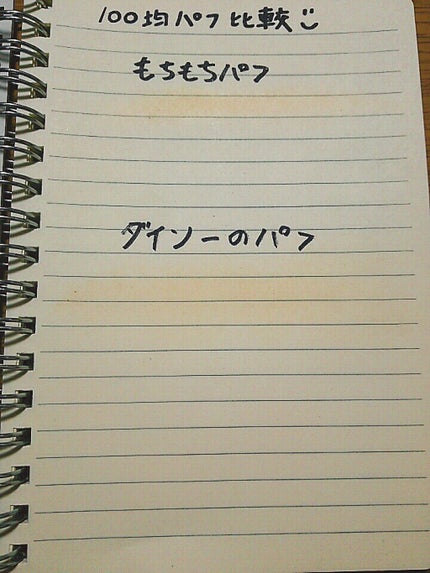 100均パフ比較
もちもちパフ
ダイソーのパフ